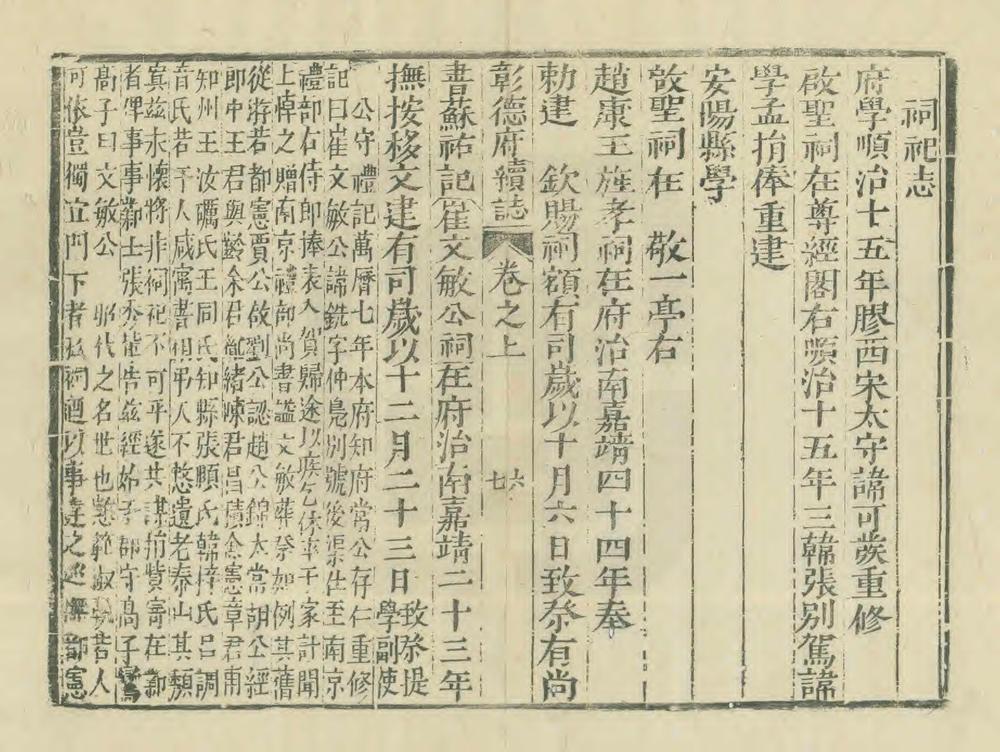 祠祀志
府學順治十五年膠西宋太守諱可發重修
啟聖祠在尊經閣右順治十五年三韓張別駕諱
學孟捐俸重建
安陽縣學
啟聖祠在 敬一亭右
趙康王旌孝祠在府治南嘉靖四十四年奉
勅建 欽賜祠額有司歲以十月六日致祭有尚
彰德府續誌 卷之上 六 七
書蘇祐記 崔文敏公祠在府治南嘉靖二十三年
撫按移文建有司歲以十二月二十三日致祭提學副使
公守禮記萬曆七年本府知府常公存仁重修
記曰崔文敏公諱銑字仲鳧別號後渠仕至南京
禮部右侍郎捧表入賀歸途以疾乞休卒于家計聞
上悼之贈南京禮部尚書謚文敏葬祭如例其舊
從游若都憲賈公啟劉公認趙公錦太常胡公經
郎中王君與齡余君繼緒陳君昌積僉憲章君甫
知州王汝礪氏王同氏知縣張願氏韓梓氏呂調
音氏若干人咸寓書相弔人不憖遺老泰山其頹
寘茲永懷將非祠祀不可乎遂共謀捐貲寄在鄴
者俾事事鄴士張秀能告茲經始于郡守高子
高子曰文敏公 昭代之名世也懿範叔我昔人
可依豈獨宜門下者私祠迺以事達之巡撫都憲